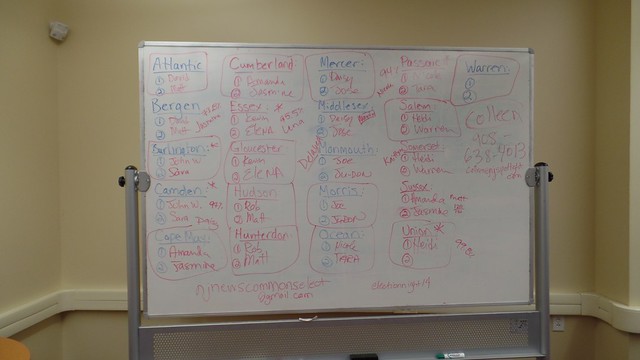 Atlantic
① David
② Matt
Bergen
① David
② Matt
Burlington: *
① John W.
② Sara
Camden: *
① John W.
② Sara Daisy
Cape May:
① Amanda
② Jasmine
Cumberland:
① Amanda
② Jasmine
Essex: *
① Kevin
② Elena Una
Gloucester
① Kevin
② ELENA
Hudson
① Rob
② Matt
Hunterdon
① Rob
② Matt
Mercer:
① Daisy
② Jose
Middlesex:
① Daisy
② Jose
Monmouth:
① Joe
② Su-Don
Morris:
① Joe
Ocean:
① Nicole
② TARA
Passaic:
① Nicole
② Tara
Salem:
① Heidi
② Warren
Somerset:
① Heidi
② Warren
Sussex
① Amanda Matt
② Jasmine
Union: *
① Heidi
②
Warren:
①
②
Colleen
njnewscommonselect
@gmail.com
electionnight19